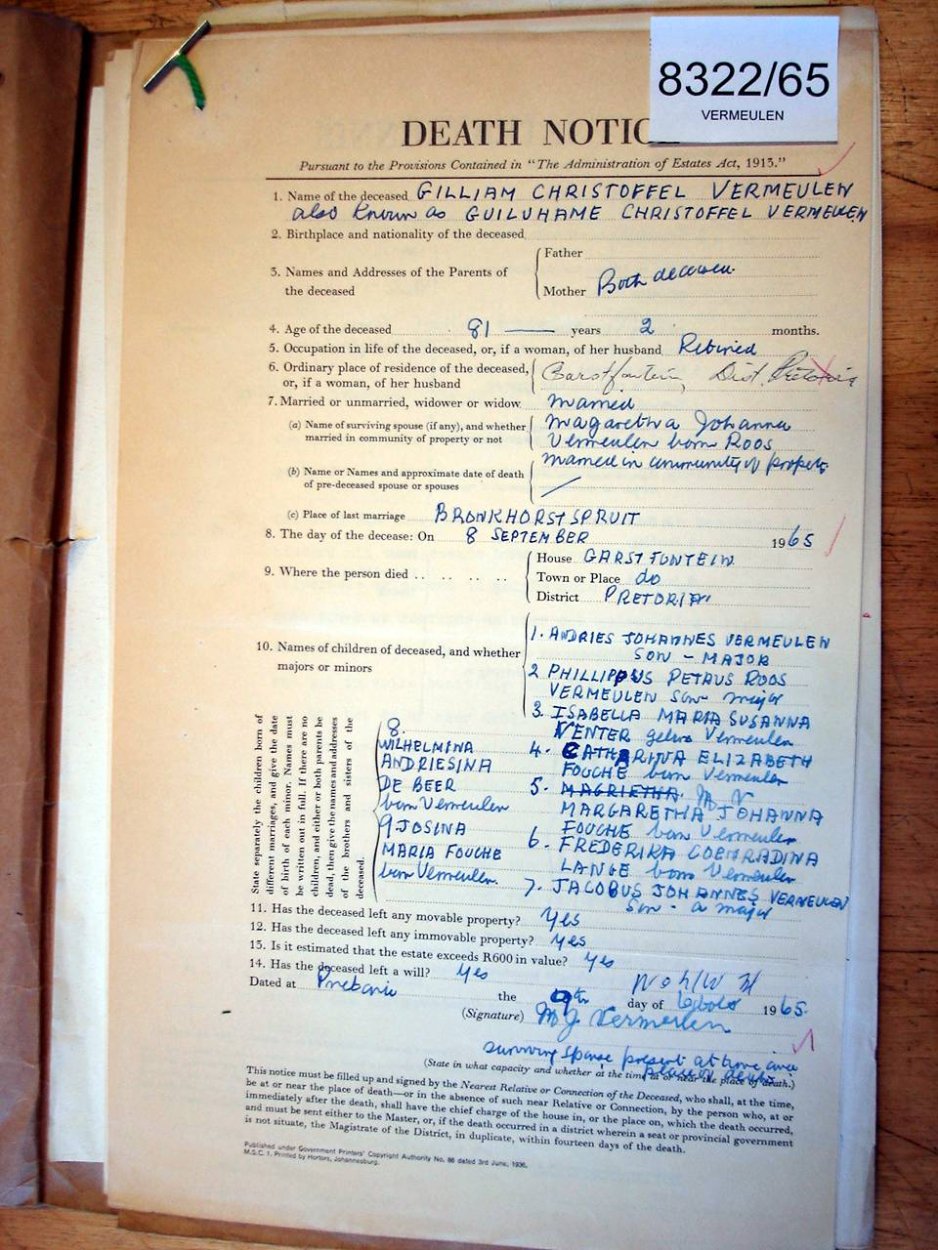 8322/65
VERMEULEN
DEATH NOTIC
Pursuant to the Provisions Contained in "The Administration of Estates Act, 1913."
1. Name of the deceased GILLIAM CHRISTOFFEL VERMEULEN
also known as GUILUHAME CHRISTOFFEL VERMEULEN
2. Birthplace and nationality of the deceased
3. Names and Addresses of the Parents of the deceased
Father
Mother Both deceased
4. Age of the deceased 81 — years 2 months.
5. Occupation in life of the deceased, or, if a woman, of her husband Retired
6. Ordinary place of residence of the deceased, or, if a woman, of her husband
Garstfontein, Dist. Pretoria
7. Married or unmarried, widower or widow. Married
(a) Name of surviving spouse (if any), and whether married in community of property or not
Magaretha Johanna
Vermeulen born Roos
Married in community of property
(b) Name or Names and approximate date of death of pre-deceased spouse or spouses
(c) Place of last marriage BRONKHORSTSPRUIT
8. The day of the decease: On 8 SEPTEMBER 1965
9. Where the person died .. .. .. ..
House GARSTFONTEIN
Town or Place do
District PRETORIA
10. Names of children of deceased, and whether majors or minors
1. ANDRIES JOHANNES VERMEULEN
SON - MAJOR
2 PHILLIPPUS PETRUS ROOS
VERMEULEN Son major
3. ISABELLA MARIA SUSANNA
VENTER gebore Vermeulen
4. CATHARINA ELIZABETH
FOUCHE born Vermeulen
5. MAGRIETHA M V
MARGARETHA JOHANNA
FOUCHE born Vermeulen
6. FREDERIKA COENRADINA
LANGE born Vermeulen
7. JACOBUS JOHANNES VERMEULEN
Son - a major
8.
WILHELMINA
ANDRIESINA
DE BEER
born Vermeulen
9 JOSINA
MARIA FOUCHE
born Vermeulen
State separately the children born of
different marriages, and give the date
of birth of each minor. Names must
be written out in full. If there are no
children, and either or both parents be
dead, then give the names and addresses
of the brothers and sisters of the
deceased.
11. Has the deceased left any movable property? Yes
12. Has the deceased left any immovable property? Yes
13. Is it estimated that the estate exceeds R600 in value? Yes
14. Has the deceased left a will? Yes
Dated at Pretoria the 9th day of 1965
(Signature) M J Vermeulen
surviving spouse present at time and
place of death
(State in what capacity and whether at the time at or near the place of death.)
This notice must be filled up and signed by the Nearest Relative or Connection of the Deceased, who shall, at the time,
be at or near the place of death—or in the absence of such near Relative or Connection, by the person who, at or
immediately after the death, shall have the chief charge of the house in, or the place on, which the death occurred,
and must be sent either to the Master, or, if the death occurred in a district wherein a seat or provincial government
is not situate, the Magistrate of the District, in duplicate, within fourteen days of the death.
Published under Government Printers' Copyright Authority No. 86 dated 3rd June, 1936.
M.S.C. 1. Printed by Hortors, Johannesburg.